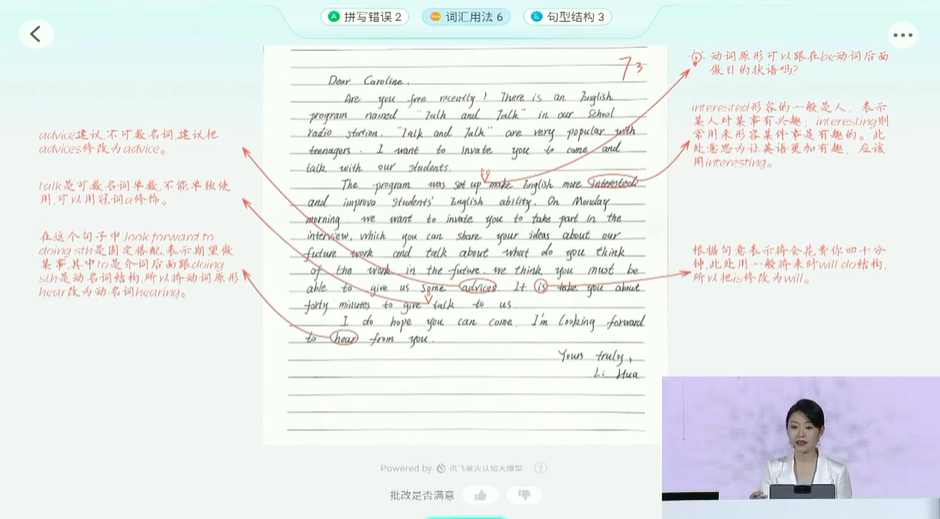 拼写错误 2
词汇用法 6
句型结构 3
73
Dear Caroline,
Are you free recently? There is an English
program named "Talk and Talk" in our school
radio station. "Talk and Talk" are very popular with
teenagers. I want to invate you to come and
talk with our students.
The program was set up make English more interested
and improve students' English ability. On Monday
morning we want to invate you to take part in the
interview, which you can share your ideas about our
future work and talk about what do you think
of the work in the future. We think you must be
able to give us some advices. It is take you about
forty minutes to give talk to us.
I do hope you can come. I'm looking forward
to hear from you.
Yours truly,
Li Hua
advice建议,不可数名词,建议把
advices修改为advice。
talk是可数名词单数,不能单独使
用,可以用冠词a修饰。
在这个句子中,look forward to
doing sth是固定搭配,表示期望做
某事,其中to是介词后面跟doing
sth是动名词结构,所以将动词原形
hear改为动名词hearing。
动词原形可以跟在be动词后面
做目的状语吗?
interested形容的一般是人，表示
某人对某事有兴趣；interesting则
常用来形容某件事是有趣的。此
处意思为让英语更加有趣，应该
用interesting。
根据句意表示将会花费你四十分
钟,此处用一般将来时will do结构,
所以把is修改为will。
Powered by 讯飞星火认知大模型 ?
批改是否满意